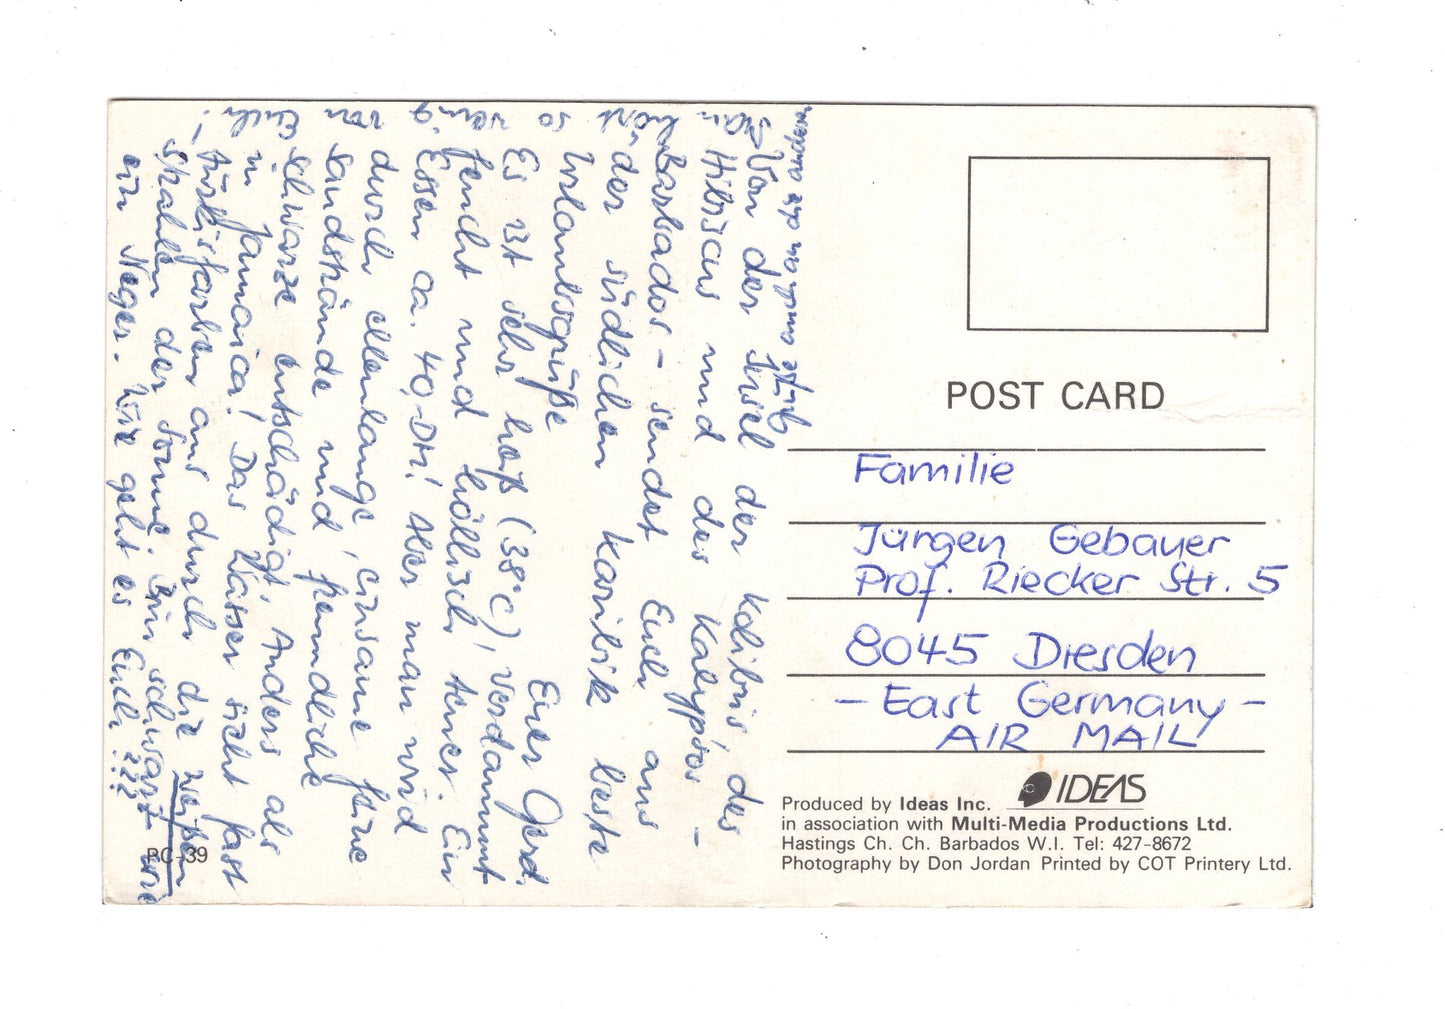 Von der Insel der Kolibris, des
Hibiscus und des Kalypsos -
Barbados - sendet Euch aus
der südlichen Karibik beste
Urlaubsgrüße
Euer Gerd.
Es ist sehr heiß (38°C), verdammt
feucht und höllisch teuer. Ein
Essen ca. 40,-DM! Aber man wird
durch ellenlange, einsame feine
Sandstrände und freundliche
Schwarze entschädigt. Anders als
in Jamaica! Das Wasser sieht fast
türkisfarben aus durch die weißen
Strahlen der Sonne. Bin schwarz wie
ein Neger. Wie geht es Euch???
hört
so
wenig
von
Euch!
-
Grüße
POST CARD
Familie
Jürgen Gebauer
Prof. Riecker Str. 5
8045 Dresden
- East Germany -
AIR MAIL
IDEAS
Produced by Ideas Inc.
in association with Multi-Media Productions Ltd.
Hastings Ch. Ch. Barbados W.I. Tel: 427-8672
Photography by Don Jordan Printed by COT Printery Ltd.
PC-39